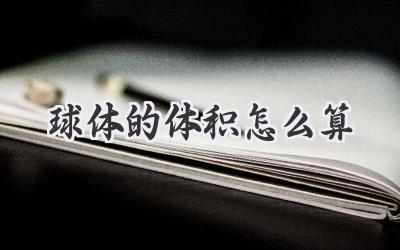 球体的体积怎么算